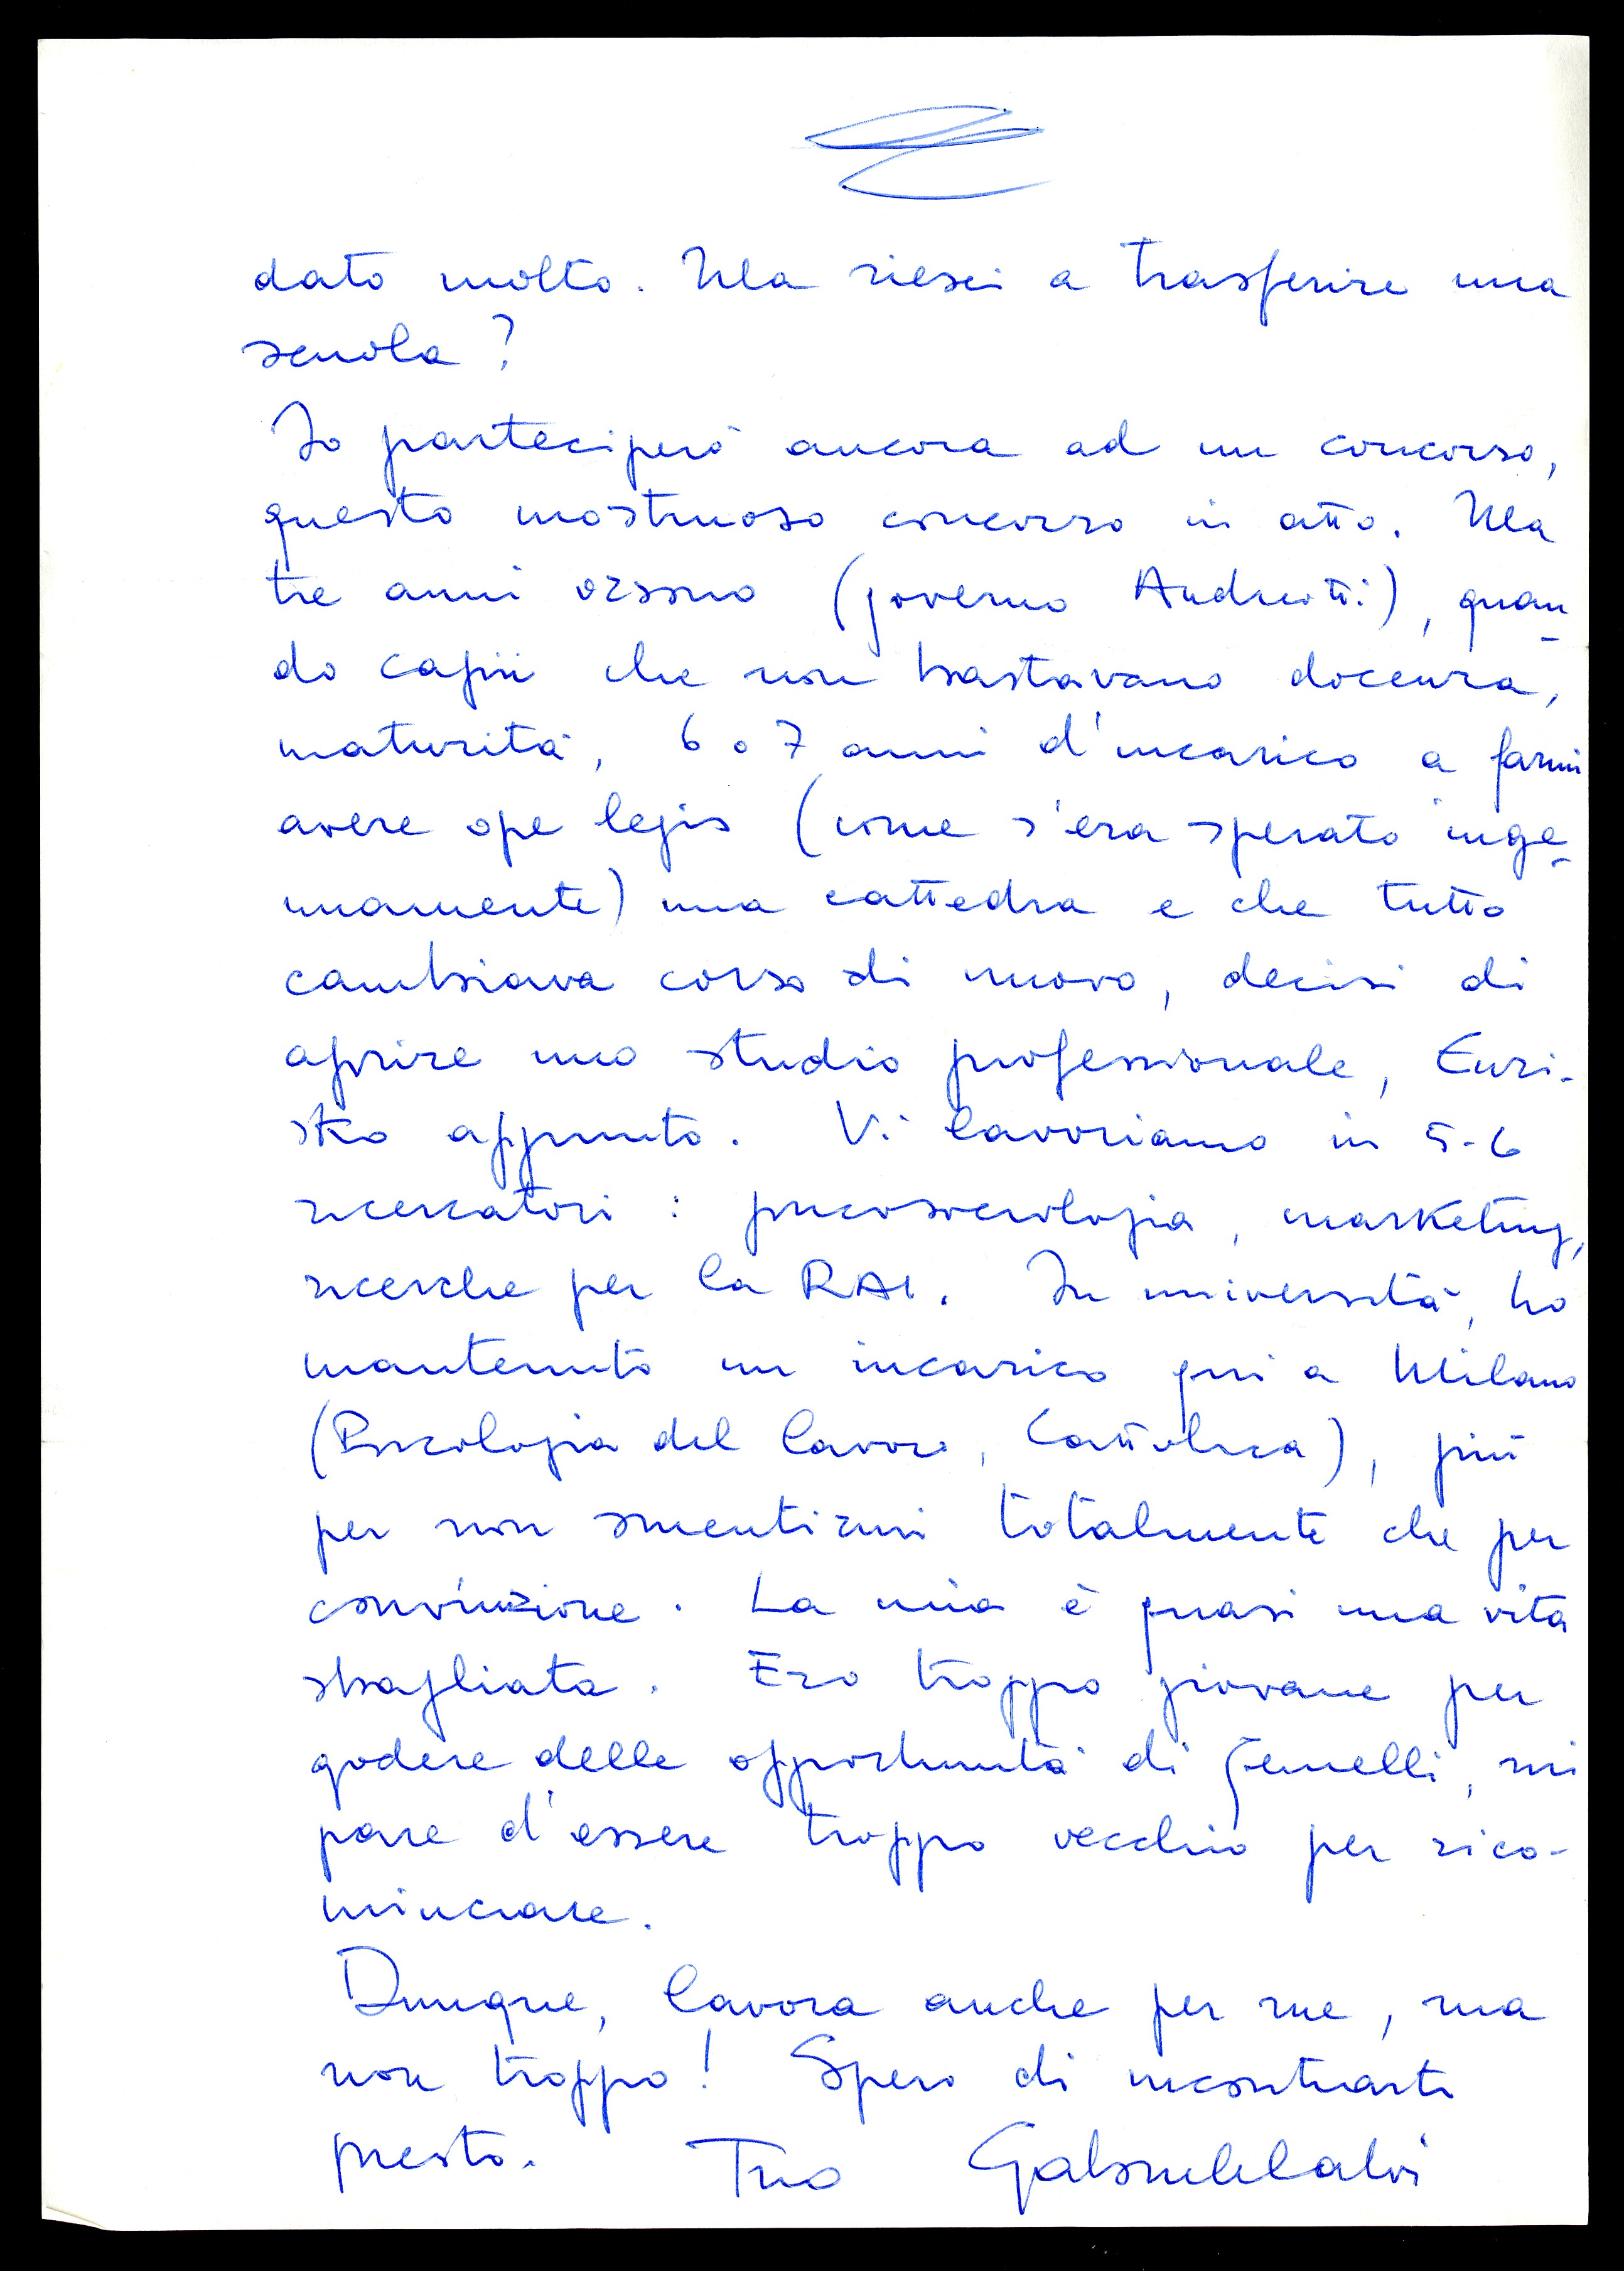 dato molto. Ma riesci a trasferire una
scuola?
Io parteciperò ancora ad un concorso,
questo mostruoso concorso in atto. Ma
tre anni orsono (governo Andreotti), quan-
do capii che non bastavano docenza,
maturità, 6 o 7 anni d'incarico a farmi
avere ope legis (come s'era sperato inge-
nuamente) una cattedra e che tutto
cambiava corso di nuovo, decisi di
aprire uno studio professionale, Euri-
sko appunto. Vi lavoriamo in 5-6
ricercatori: psicosociologia, marketing,
ricerche per la RAI. In università, ho
mantenuto un incarico qui a Milano
(Psicologia del lavoro, Cattolica), più
per non smentirmi totalmente che per
convinzione. La mia è quasi una vita
sbagliata. Ero troppo giovane per
godere delle opportunità di Gemelli, mi
pare d'essere troppo vecchio per rico-
minciare.
Dunque, lavora anche per me, ma
non troppo! Spero di incontrarti
presto. Tuo Gabriele Calvi